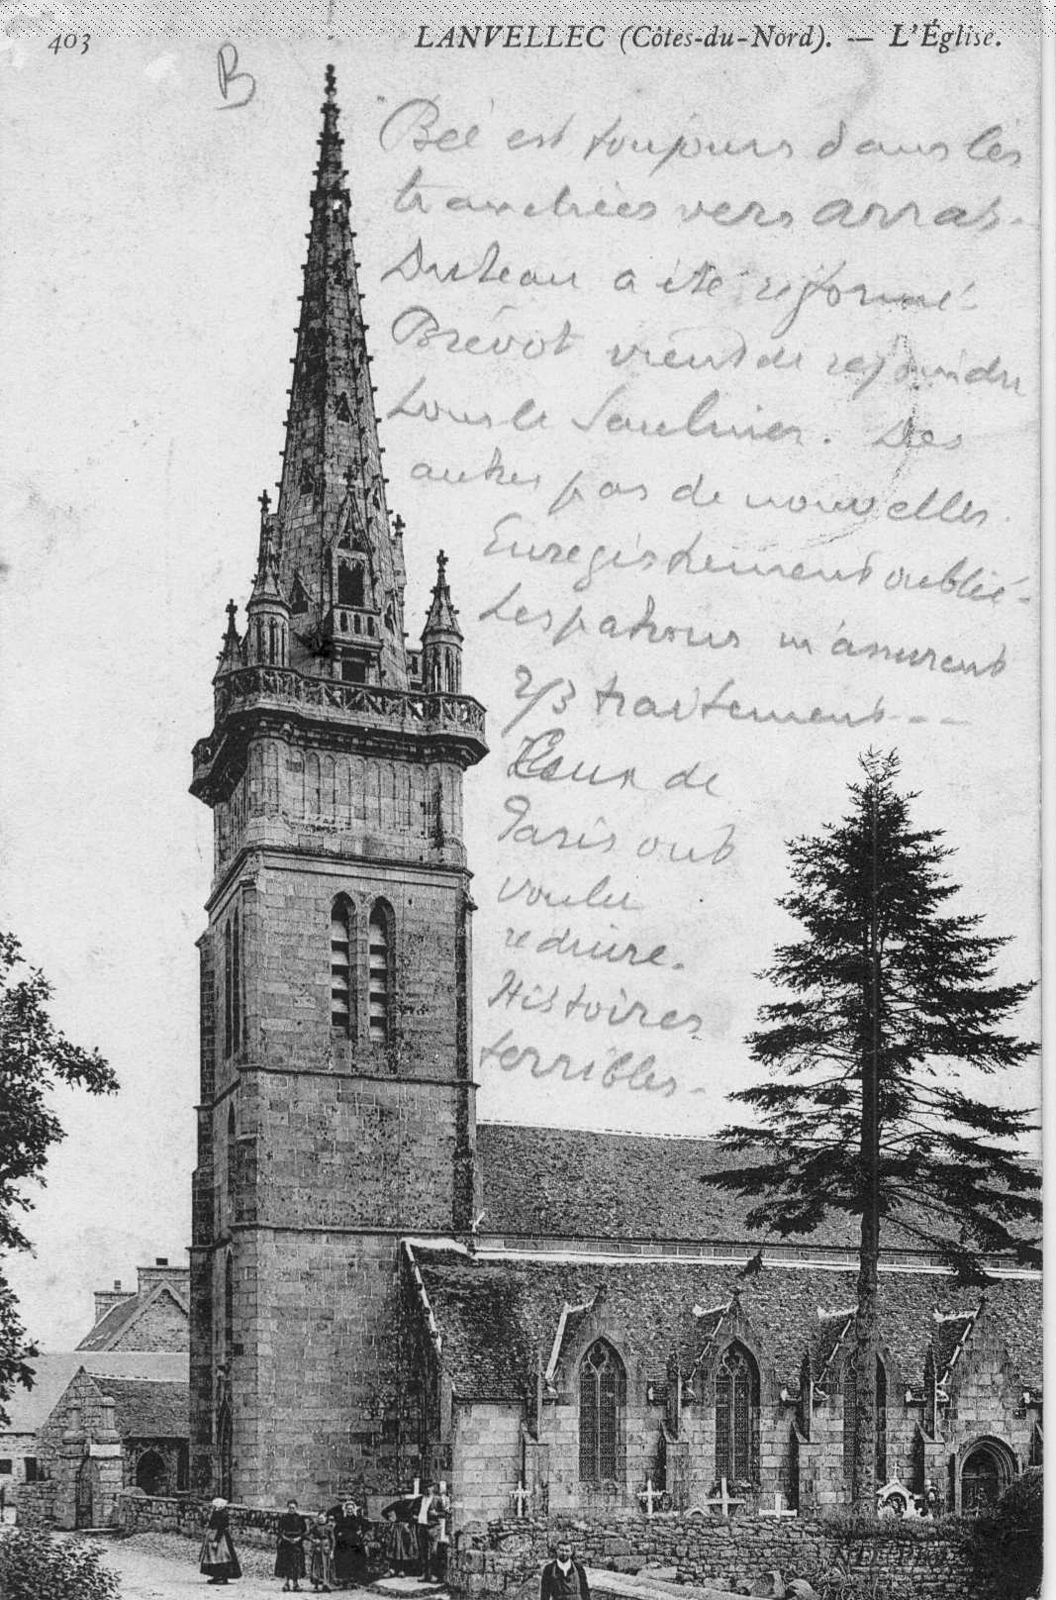 403
LANVELLEC (Côtes-du-Nord). — L'Église.
B
Bée est toujours dans les
tranchées vers Arras.
Duteau a été réformé.
Brévot vient de rejoindre
Lons le Saulnier. Des
autres pas de nouvelles.
Enregistrement oublié.
Les patrons m'assurent
2/3 traitement - -
Ceux de
Paris ont
voulu
réduire.
Histoires
terribles -
ND Phot